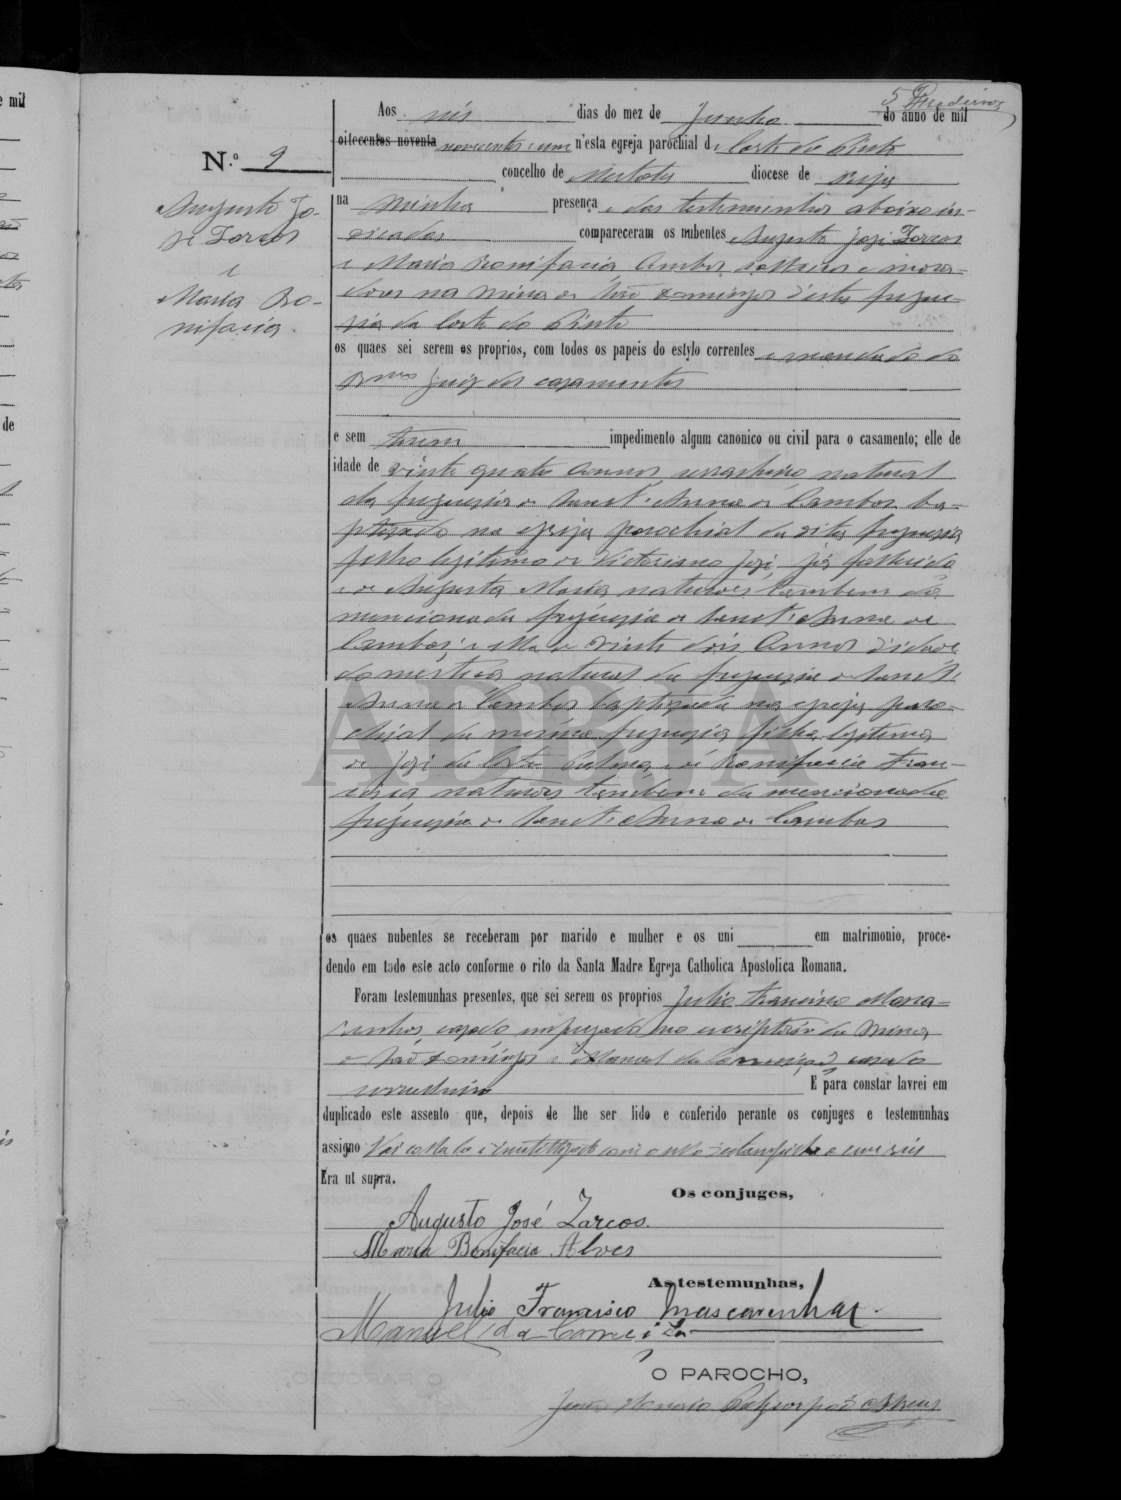 e mil
de
5
Aos seis dias do mez de Junho do anno de mil
oitecentos noventa novecentos e um n'esta egreja parochial de Corte do Pinto
concelho de Mertola diocese de Beja
N.º 9
na minha presença e das testemunhas abaixo in-
dicadas compareceram os nubentes Augusto José Zarcos
e Maria Bonifacia, ambos solteiros e mora-
dores na Mina de São Domingos d'esta fregue-
sia da Corte do Pinto
Augusto Jo-
sé Zarcos
e
Maria Bo-
nifacia.
os quaes sei serem os proprios, com todos os papeis do estylo correntes e mandado do
Juiz dos casamentos
e sem terem impedimento algum canonico ou civil para o casamento; elle de
idade de vinte quatro annos, natural
da freguesia de Sanct'Anna de Cambas, ba-
ptisado na egreja parochial da dita freguesia
filho legitimo de Victoriano José, já fallecido
e de Augusta Maria naturaes tambem da
mencionada freguesia de Sanct'Anna de
Cambas; e ella de vinte dois annos d'idade
domestica natural da freguesia de Sanct'
Anna de Cambas baptisada na egreja paro-
chial da mesma freguesia filha legitima
de José da Corte Palma, e de Bonifacia Fran-
cisca naturaes tambem da mencionada
freguesia de Sanct'Anna de Cambas
ADBJA
os quaes nubentes se receberam por marido e mulher e os uni em matrimonio, proce-
dendo em todo este acto conforme o rito da Santa Madre Egreja Catholica Apostolica Romana.
Foram testemunhas presentes, que sei serem os proprios Julio Francisco Masca-
renhas, casado empregado no escriptorio da Mina
de São Domingos e Manuel da Conceição, casado
E para constar lavrei em
duplicado este assento que, depois de lhe ser lido e conferido perante os conjuges e testemunhas
assigno Vai collada e inutilizada com o sello
Era ut supra.
Os conjuges,
Augusto José Zarcos.
Maria Bonifacia Alves
As testemunhas,
Julio Francisco Mascarenhas.
Manuel da Conceição
O PAROCHO,